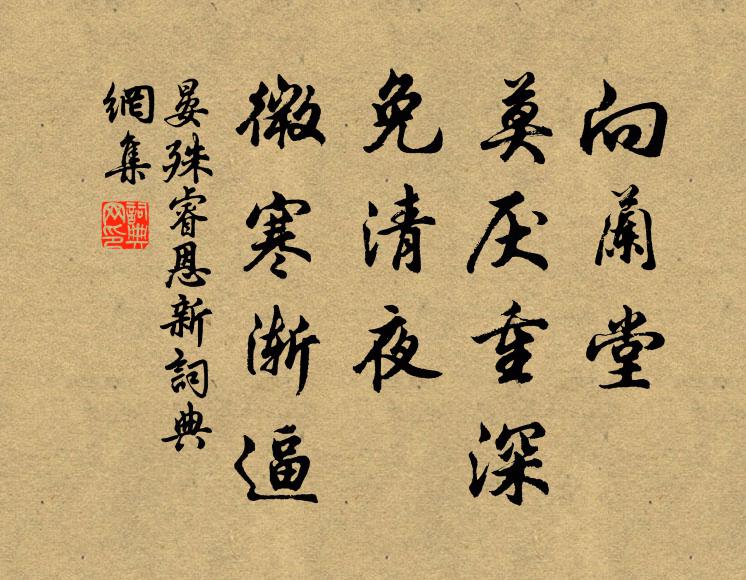 向蘭堂
莫厌重深
免清夜
微寒渐逼
晏殊睿恩新詞典
網集
詞典
网印